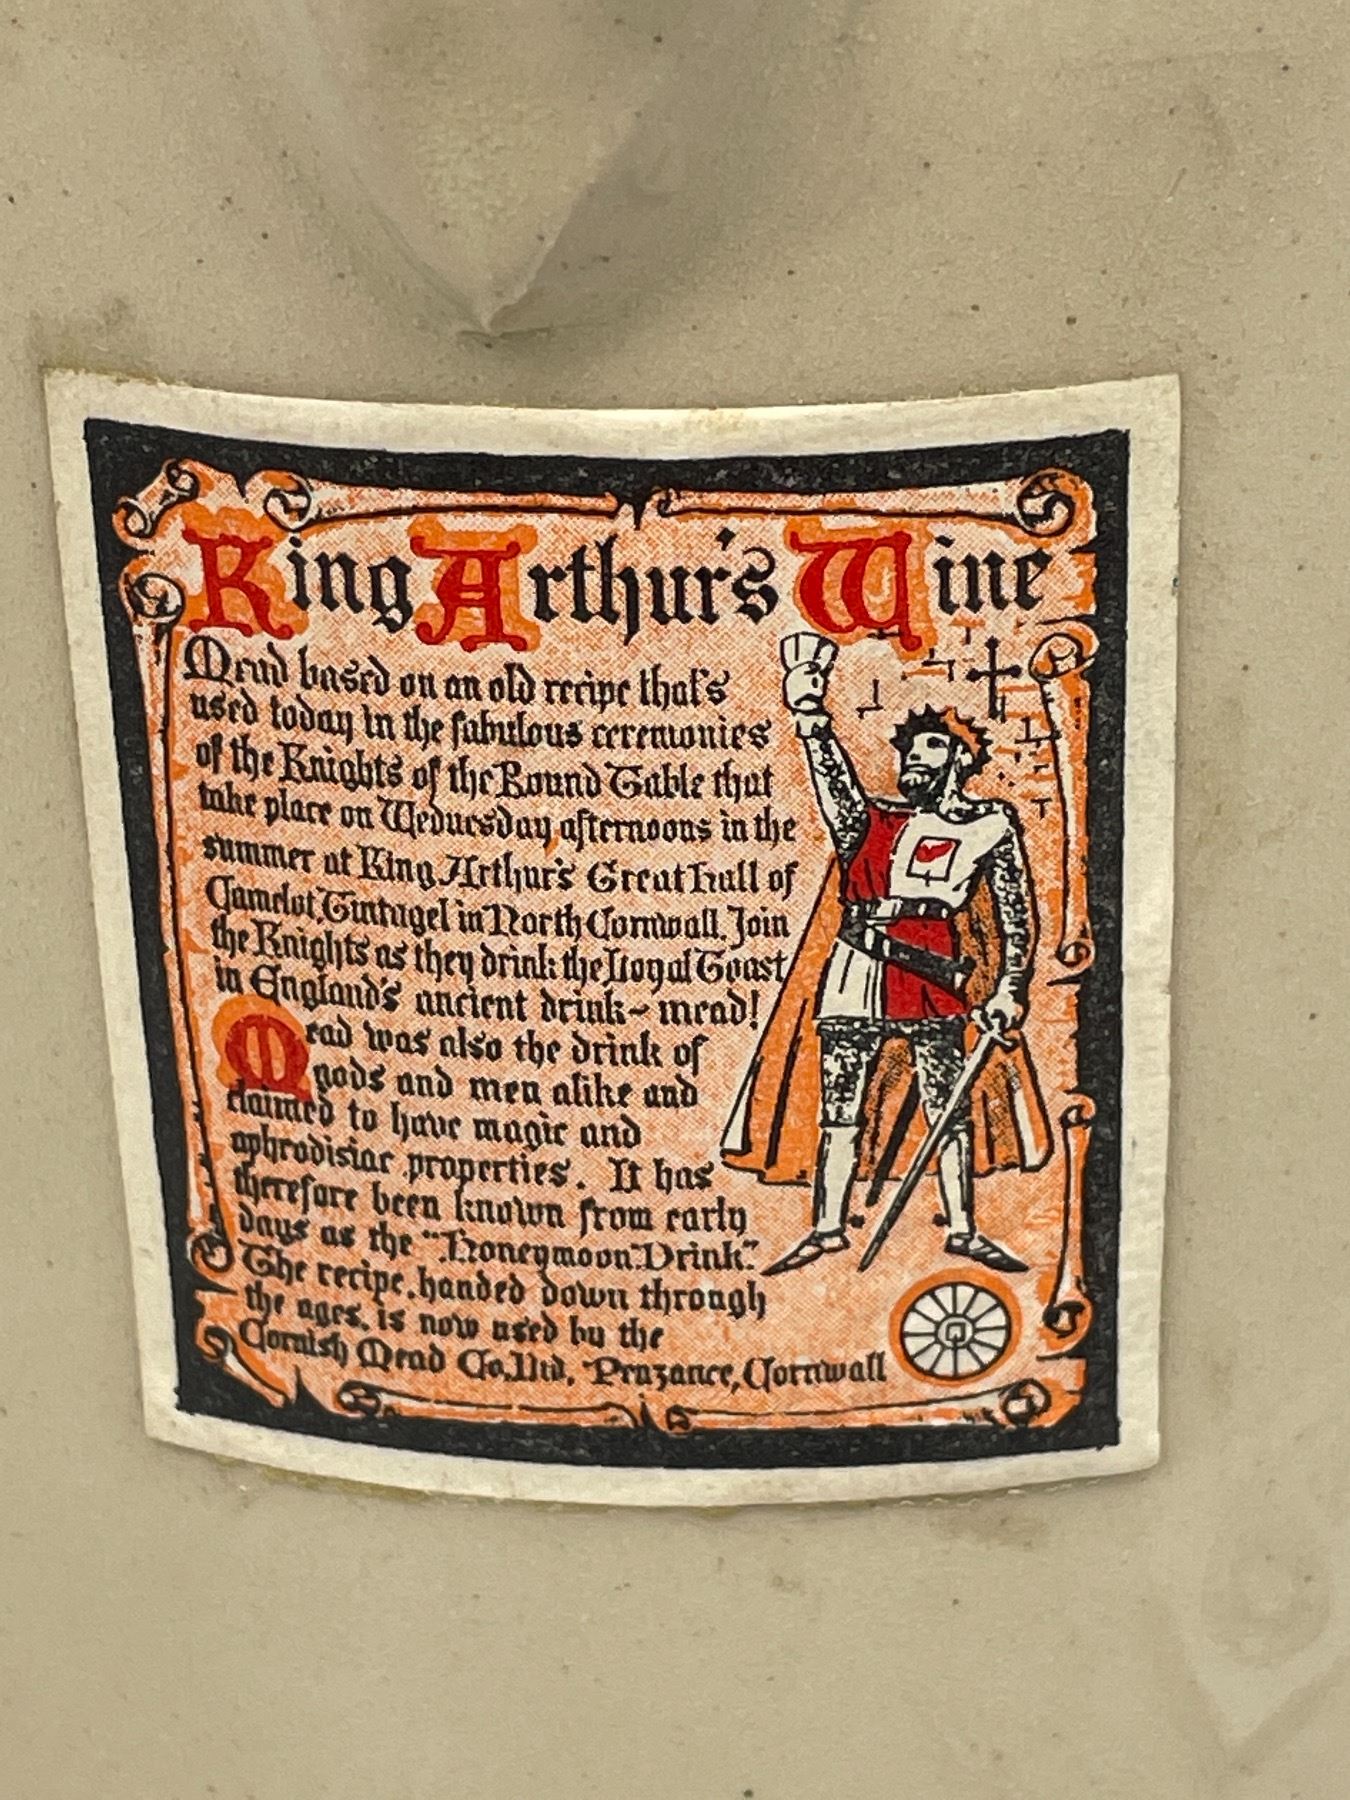 King Arthur's Wine
Mead based on an old recipe that's
used today in the fabulous ceremonies
of the Knights of the Round Table that
take place on Wednesday afternoons in the
summer at King Arthur's Great Hall of
Camelot, Tintagel in North Cornwall. Join
the Knights as they drink the Loyal Toast
in England's ancient drink~ mead!
Mead was also the drink of
gods and men alike and
claimed to have magic and
aphrodisiac properties. It has
therefore been known from early
days as the "Honeymoon Drink."
The recipe, handed down through
the ages, is now used by the
Cornish Mead Co, Ltd, Penzance, Cornwall